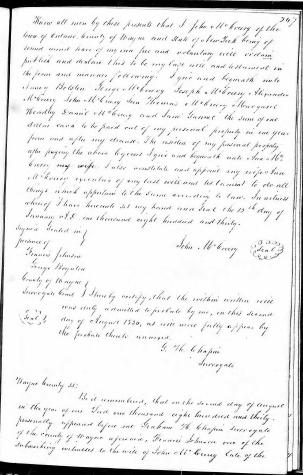 247
Know all men by these presents that I John McCurry of the
town of Ontario County of Wayne and State of New York being of
sound mind have of my own free and voluntary will ordain
publish and declare this to be my last will and testament in
the form and manner following. I give and bequeath unto
Nancy McCurry Joseph McCurry Alexander
McCurry John McCurry Jun Thomas McCurry Margaret
Daniel McCurry and the sum of one
dollar each to be paid out of my personal property in one year
from and after my decease. The residue of my personal property
after paying the above legacies I give and bequeath unto Mc
Curry my wife. I also constitute and appoint my wife
McCurry executrix of my last will and testament to do all
things which appertain to the same according to law. In witness
whereof I have hereunto set my hand and Seal the 19th day of
January A.D. one thousand eight hundred and thirty.
Signed Sealed in
presence of
John McCurry Seal
Francis Johnson
George
County of Wayne
Surrogate Court I hereby certify, that the within written will
was duly admitted to probate by me, on this second
Seal day of August 1830, as will more fully appear by
the probate thereto annexed.
G. H. Chapin
Surrogate
Wayne County ss:
Be it remembered, that on the second day of August
in the year of our Lord one thousand eight hundred and thirty
personally appeared before me Graham H. Chapin Surrogate
of the county of Wayne aforesaid, Francis Johnson one of the
subscribing witnesses to the will of John McCurry late of the